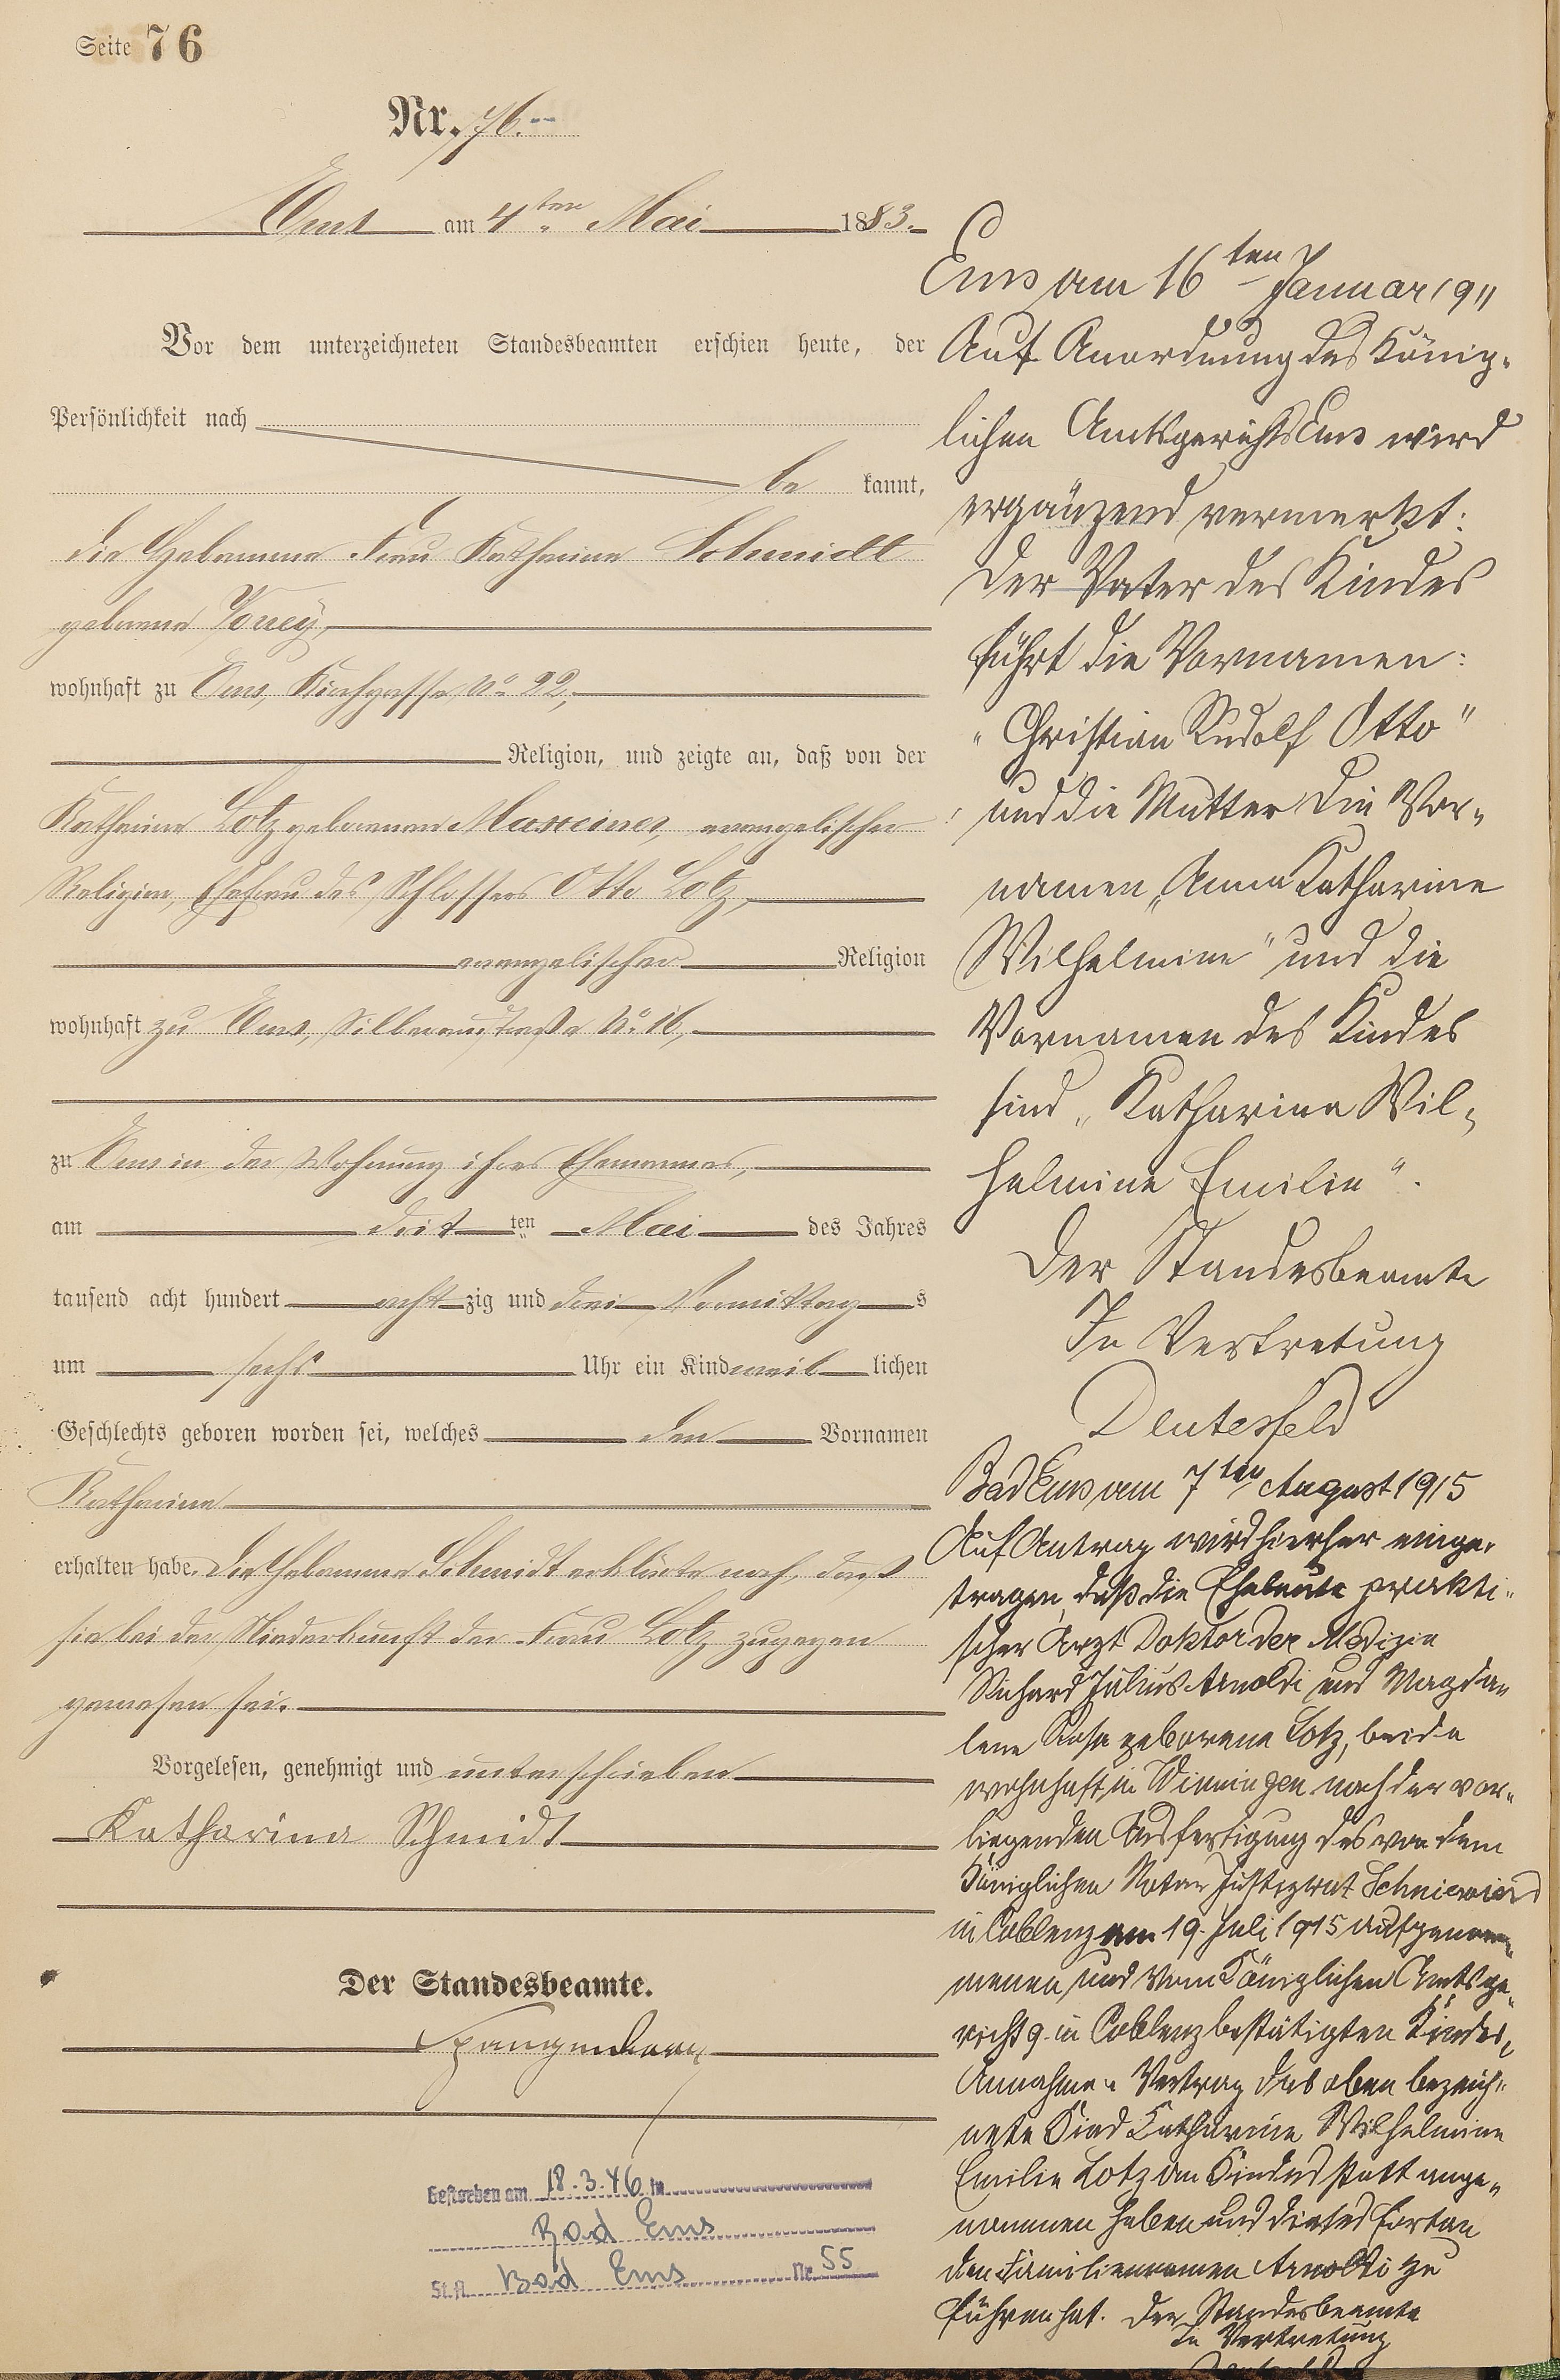 Seite 76
Nr. 76.
Ems am 4ten Mai 1883.
Vor dem unterzeichneten Standesbeamten erschien heute, der
Persönlichkeit nach
be kannt,
die Hebamme Frau Katharina Schmidt
geborene
wohnhaft zu Ems, Kirchgasse No 22,
Religion, und zeigte an, daß von der
Katharina Lotz geborenen Maxeiner, evangelischer
Religion, Ehefrau des Schlossers Otto Lotz,
evangelischer Religion
wohnhaft zu Ems, Silberaustraße No 16,
zu Ems in der Wohnung ihres Ehemannes,
am drit ten Mai des Jahres
tausend acht hundert acht zig und drei Vormittag s
um sechs Uhr ein Kind weib lichen
Geschlechts geboren worden sei, welches den Vornamen
Katharina
erhalten habe. Die Hebamme Schmidt erklärte noch, daß
sie bei der Niederkunft der Frau Lotz zugegen
gewesen sei.
Vorgelesen, genehmigt und unterschrieben
Katharina Schmidt
Der Standesbeamte.
Spangenberg
Gestorben am 18.3.46 in
Bad Ems
St.A. Bad Ems Nr. 55
Ems am 16ten Januar 1911
Auf Anordnung des König-
lichen Amtsgerichts Ems wird
ergänzend vermerkt:
Der Vater des Kindes
führt die Vornamen:
"Christian Rudolf Otto"
und die Mutter die Vor-
namen "Anna Katharine
Wilhelmine" und die
Vornamen des Kindes
sind "Katharina Wil-
helmine Emilie".
Der Standesbeamte
In Vertretung
Deutesfeld
Bad Ems am 7ten August 1915
Auf Antrag wird hierher einge-
tragen, daß die Eheleute prakti-
scher Arzt Doktor der Medizin
Richard Julius Arnoldi und Magda-
lene Rosa geborene Lotz, beide
wohnhaft in Winningen nach der vor-
liegenden Ausfertigung des von dem
Königlichen Notar Justizrat Schniewind
in Coblenz am 19. Juli 1915 aufgenom-
menen und vom Königlichen Amtsge-
richt 9. in Coblenz bestätigten Kindes-
Annahme-Vertrag das oben bezeich-
nete Kind Katharina Wilhelmine
Emilie Lotz an Kindesstatt ange-
nommen haben und dieses fortan
den Familiennamen Arnoldi zu
führen hat. Der Standesbeamte
In Vertretung